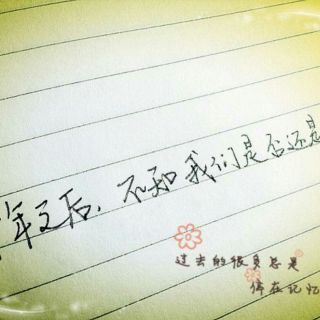 年之后，不知我们是否还是
过去的很多总是
停在记忆